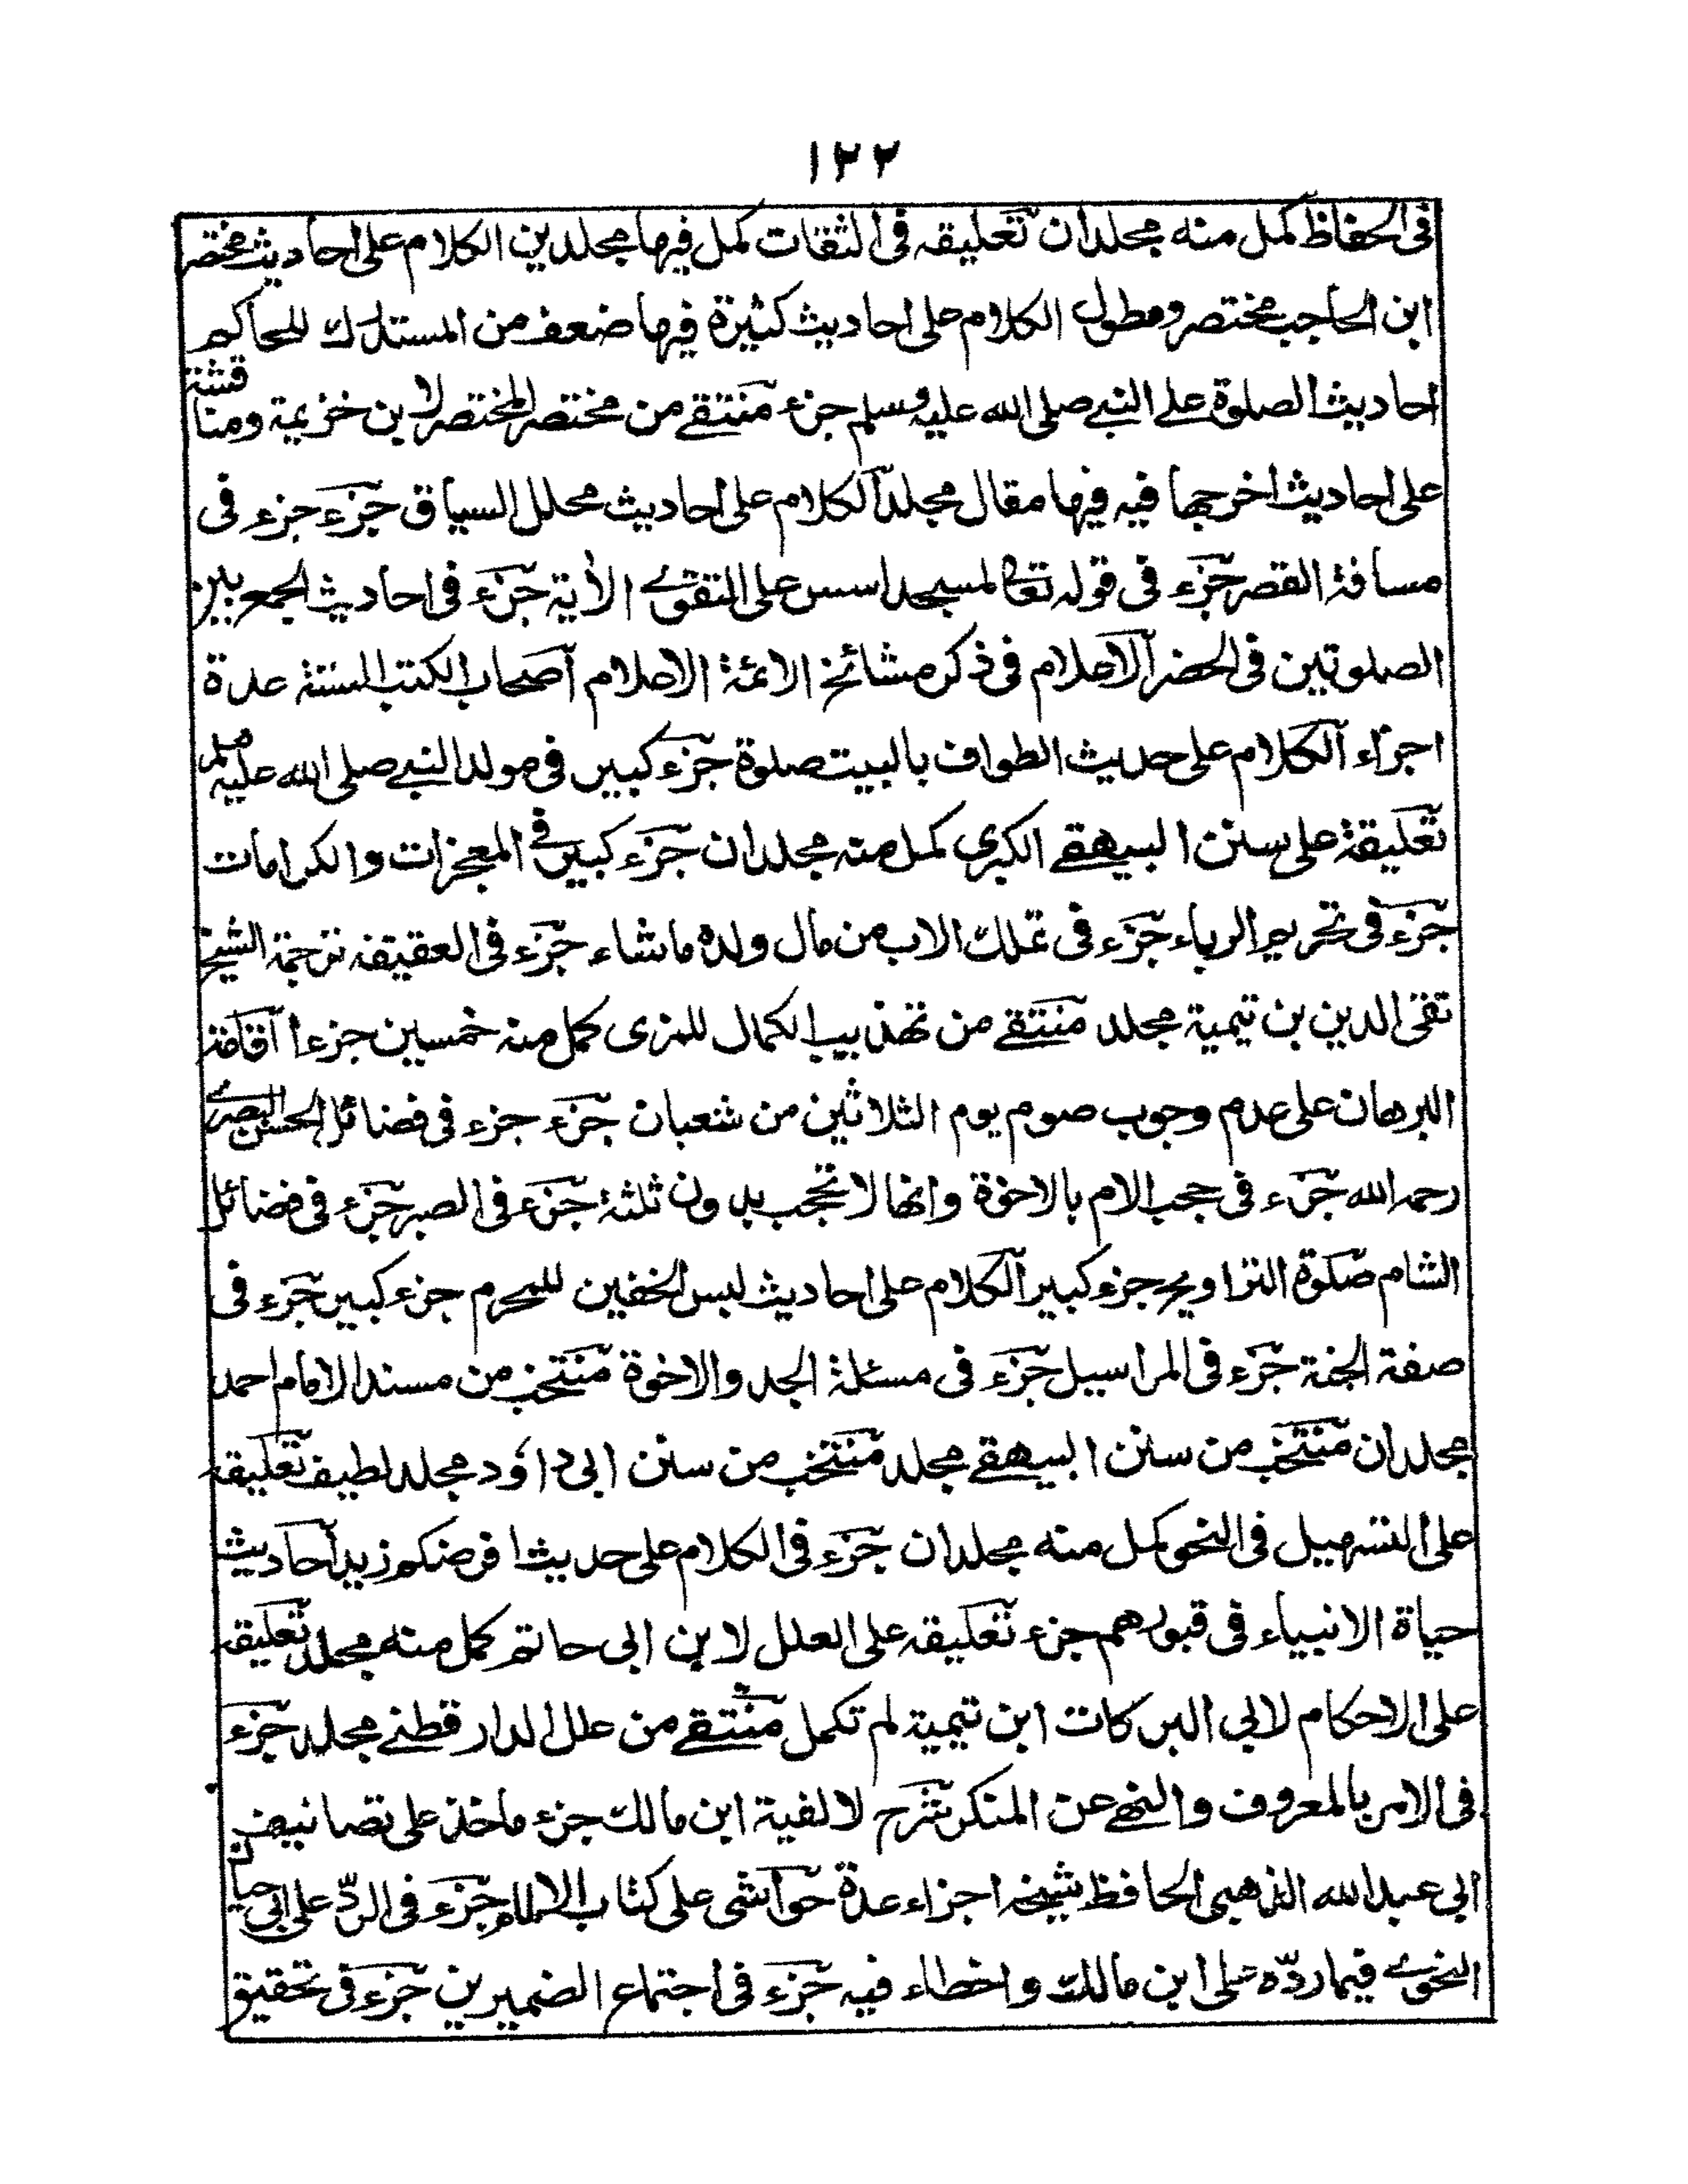 ١٢٢
فى الحفاظ كمل منه مجلدان تعليقه فى الثقات كمل فيها مجلدين الكلام على احاديث مختصر
ابن الحاجب مختصر ومطول الكلام على احاديث كثيرة فيها ضعف من المستدرك للحاكم
احاديث الصلوة على النبے صلى الله عليه وسلم جزء منتقے من مختصر المختصر لابن خزيمة ومناقشة
على احاديث اخرجها فيه فيها مقال مجلد الكلام على احاديث محلل السياق جزء جزء فى
مسافة القصر جزء فى قوله تعا لمسجد اسس على التقوے الأية جزء فى احاديث الجمع بين
الصلوتين فى الحضر الاعلام فى ذكر مشائخ الائمة الاعلام اصحاب الكتب الستة عدة
اجزاء الكلام على حديث الطواف بالبيت صلوة جزء كبير فى مولد النبے صلى الله عليه وسلم
تعليقة على سنن البيهقے الكبرى كمل منه مجلدان جزء كبير فى المعجزات والكرامات
جزء فى تحريم الرباء جزء فى تملك الاب من مال ولده ماشاء جزء فى العقيقه ترجمة الشيخ
تقى الدين بن تيمية مجلد منتقے من تهذيب الكمال للمزى كمل منه خمسين جزءا اقامة
البرهان على عدم وجوب صوم يوم الثلاثين من شعبان جزء جزء فى فضائل الحسن البصرے
رحمه الله جزء فى حجب الام بالاخوة وانها لا تحجب بدون ثلثة جزء فى الصبر جزء فى فضائل
الشام صلوة التراويح جزء كبير الكلام على احاديث لبس الخفين للمحرم جزء كبير جزء فى
صفة الجنة جزء فى المراسيل جزء فى مسئلة الجد والاخوة منتخب من مسند الامام احمد
مجلدان منتخب من سنن البيهقے مجلد منتخب من سنن ابى داؤد مجلد لطيف تعليقه
على التسهيل فى النحو كمل منه مجلدان جزء فى الكلام على حديث افرضكم زيد احاديث
حياة الانبياء فى قبورهم جزء تعليقه على العلل لابن ابى حاتم كمل منه مجلد تعليقه
على الاحكام لابى البركات ابن تيمية لم تكمل منتقے من علل الدار قطنے مجلد جزء
فى الامر بالمعروف والنهے عن المنكر شرح لالفية ابن مالك جزء ماخذ على تصانيف
ابى عبد الله الذهبى الحافظ شيخه اجزاء عدة حواشى على كتاب الالمام جزء فى الردّ على ابى حيان
النحوے فيما ردّه على ابن مالك واخطاء فيه جزء فى اجتماع الضميرين جزء فى تحقيق